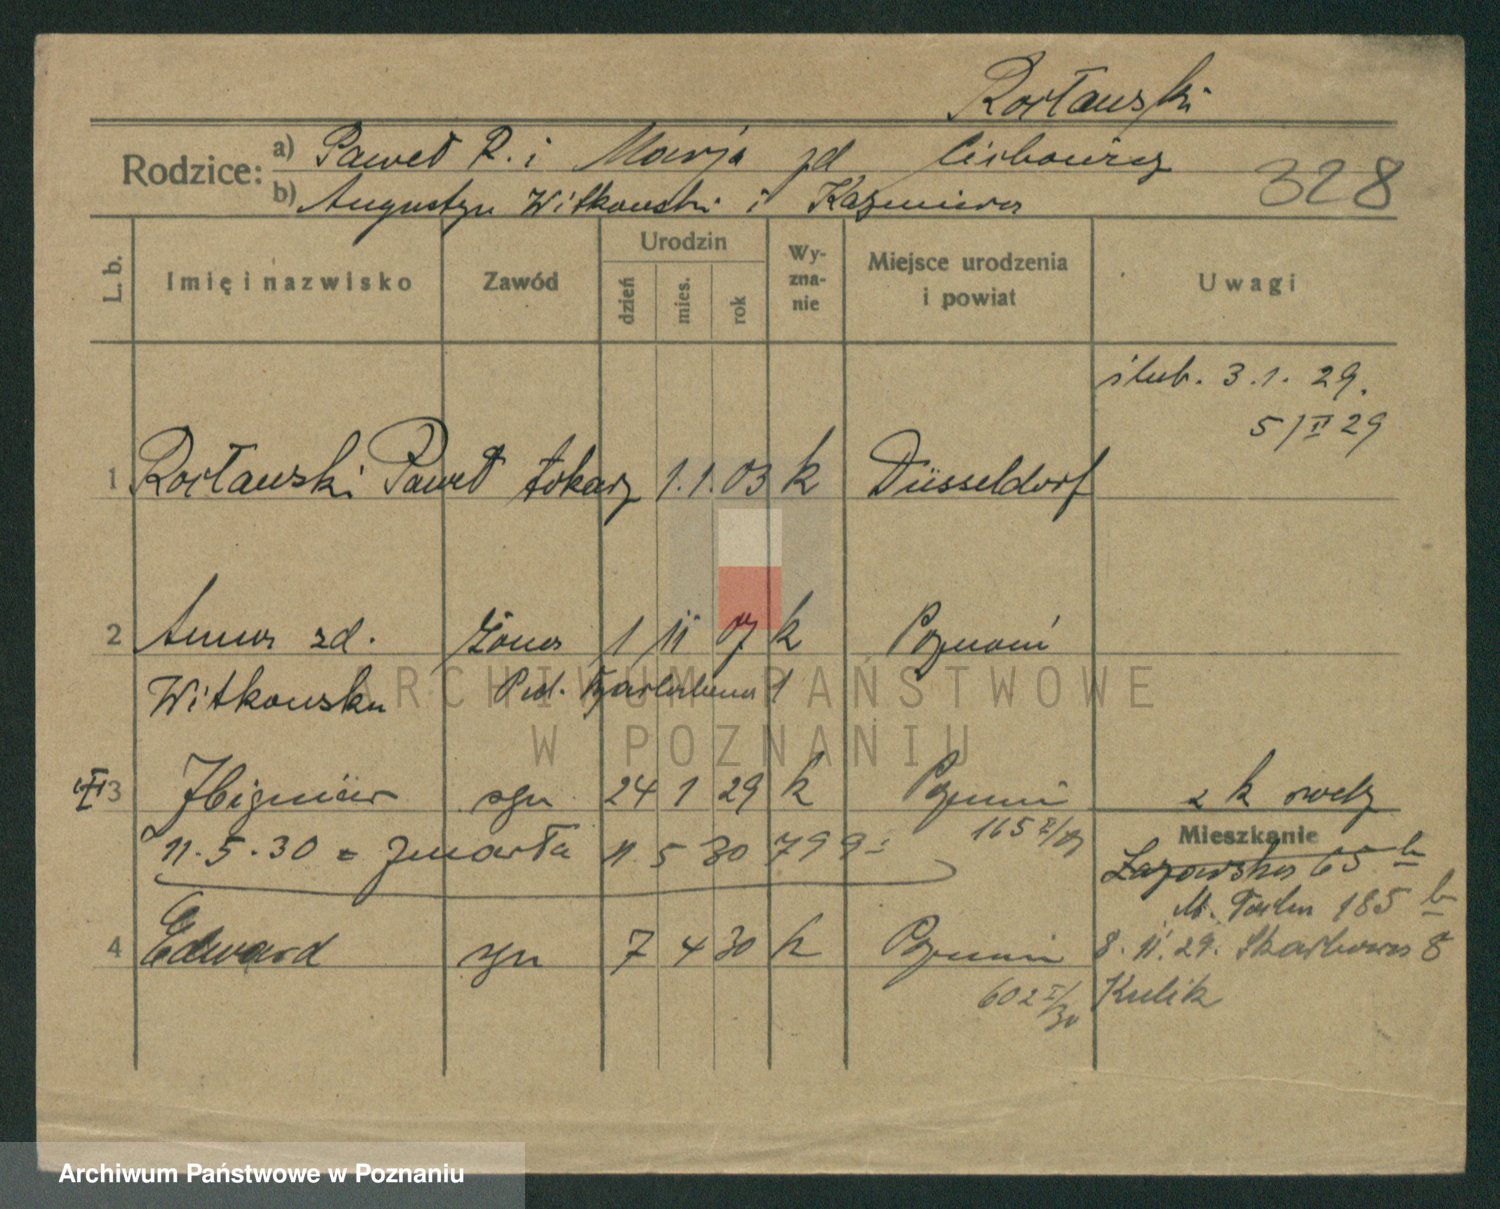 Rosławski
Rodzice:
a) Paweł R. i Marja zd Cichowicz
b) Augustyn Witkowski i Kazimiera
328
L. b.
Imię i nazwisko
Zawód
Urodzin
dzień
mies.
rok
Wy-
zna-
nie
Miejsce urodzenia
i powiat
Uwagi
ślub. 3.1. 29.
5/II 29
1 Rosławski Paweł tokarz 1. 1. 03 k Düsseldorf
2 Anna zd. żona 1 11 07 k Poznań
Witkowska
3 Zbigniew syn 24 1 29 k Poznań
165 I/29
11. 5. 30 zmarł 11 5 30 799
4 Edward syn 7 4 30 k Poznań
602 I/30
Mieszkanie
65 b
185 b
8. 11. 29. Skarbowa 8
Kulik
ARCHIWUM PAŃSTWOWE
W POZNANIU
Archiwum Państwowe w Poznaniu